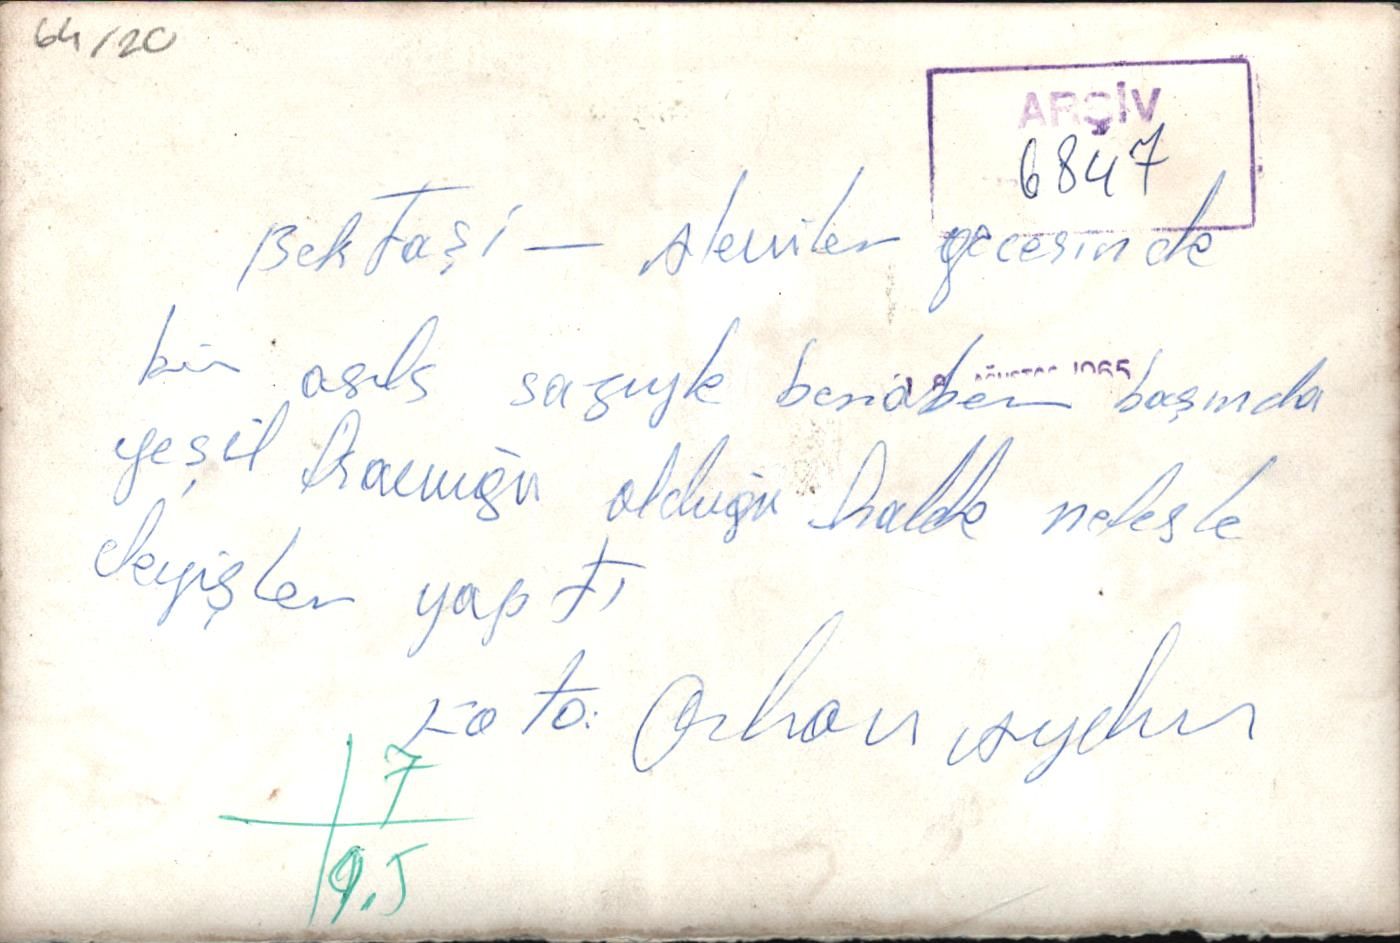 64/20
ARŞİV
6847
Bektaşi — Aleviler gecesinde
AĞUSTOS 1965
bir aşık sazıyle beraber başında
yeşil kavuğu olduğu halde nefesle
deyişler yaptı
Foto: Orhan Aydın
7
9,5